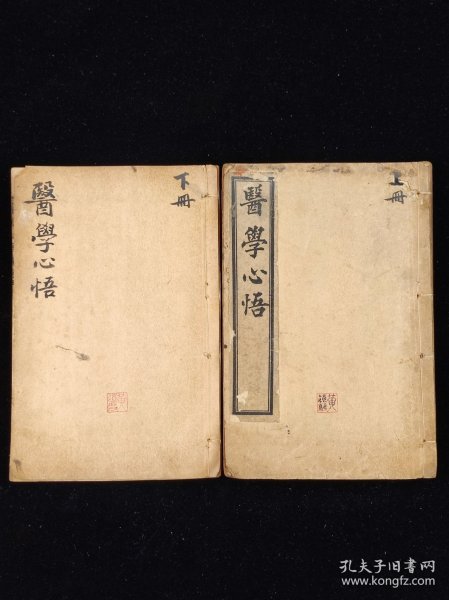 上冊
醫學心悟
下冊
醫學心悟
孔夫子旧书网
www.kongfz.com